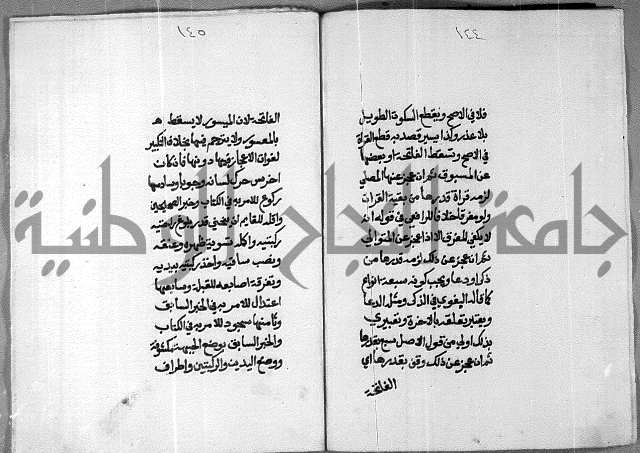 ١٤٤
فلا في الاصح ويقطع السكوت الطويل
بلا عذر وكذا يسير قصد به قطع القراة
في الاصح وتسقط الفاتحة او بعضها
عن المسبوق ثم ان عجز عنها المصلي
لزمه قراة قدرها من بقية القران
ولو مفرقا خلافا للرافعي في قوله انه
لا يكفي المفرق الا اذا عجز عن المتوالي
ثم ان عجز عن ذلك لزمه قدرها من
ذكر او دعا ويجب كونه سبعة انواع
كما قاله البغوي في الذكر ومثله الدعا
ويعتبر تعلقه بالاخرة وتعبيري
بذلك اولى من قول الاصل سبع بقدرها
ثم ان عجز عن ذلك وقف بقدرها اي
الفاتحة
١٤٥
الفاتحة لان الميسور لا يسقط
بالمعسور ولا يترجم فيها بخلاف التكبير
لفوات الاعجاز فيها دونها فان كانت
اخرس حرك لسانه وجوبا وسادسها
ركوع للامر به في الكتاب وخبر الصحيحين
واقله للقايم ان ينحني قدر بلوغ راحتيه
ركبتيه واكمله تسوية ظهره وعنقه
ونصب ساقيه واخذ ركبتيه بيديه
وتفرقة اصابعه للقبلة وسابعها
اعتدال للامر به في الخبر السابق
وثامنها سجود للامر به في الكتاب
والخبر السابق بوضع الجبهة مكشوفة
ووضع اليدين والركبتين واطراف
جامعة النجاح الوطنية